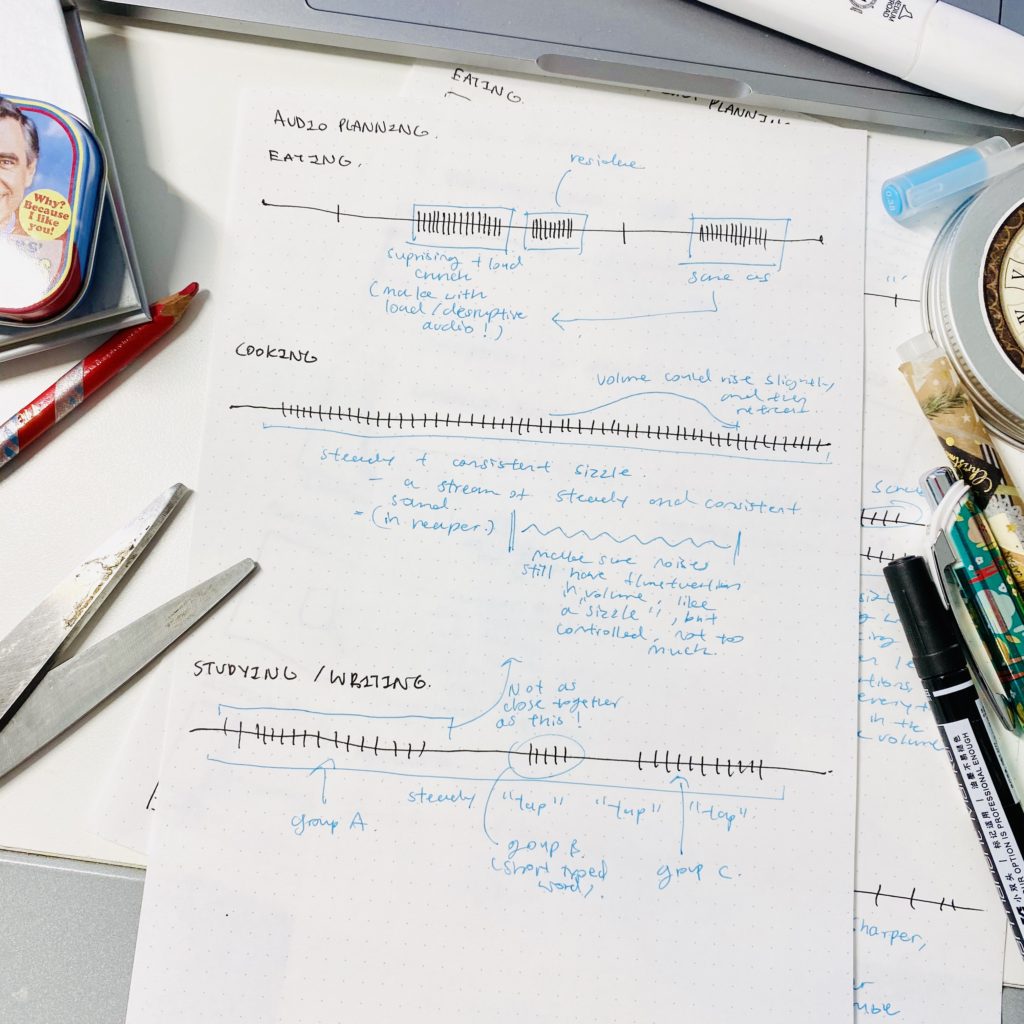 EATING.
PLANNI..
AUDIO PLANNING.
EATING.
residue
suprising + loud
crunch
(make with
loud/desruptive
audio!)
same as
COOKING
volume could rise slightly
and then
retreat.
steady + consistent sizzle.
- a stream of steady and consistent
sound.
= (in reaper.)
make sure noises
still have
in volume, like
a "sizzle", but
controlled, not too
much.
STUDYING / WRITING.
Not as
close together
as this!
steady "tap" "tap" "tap".
group A.
group B.
(short typed
word)
group C.
Why?
Because
I like
you!
MEDIUM
BROAD
0.38
Christmas
in the
volume
harper,
小双头 | 标记适用 | 油墨不易褪色
OUR OPTION IS PROFESSIONAL ENOUGH